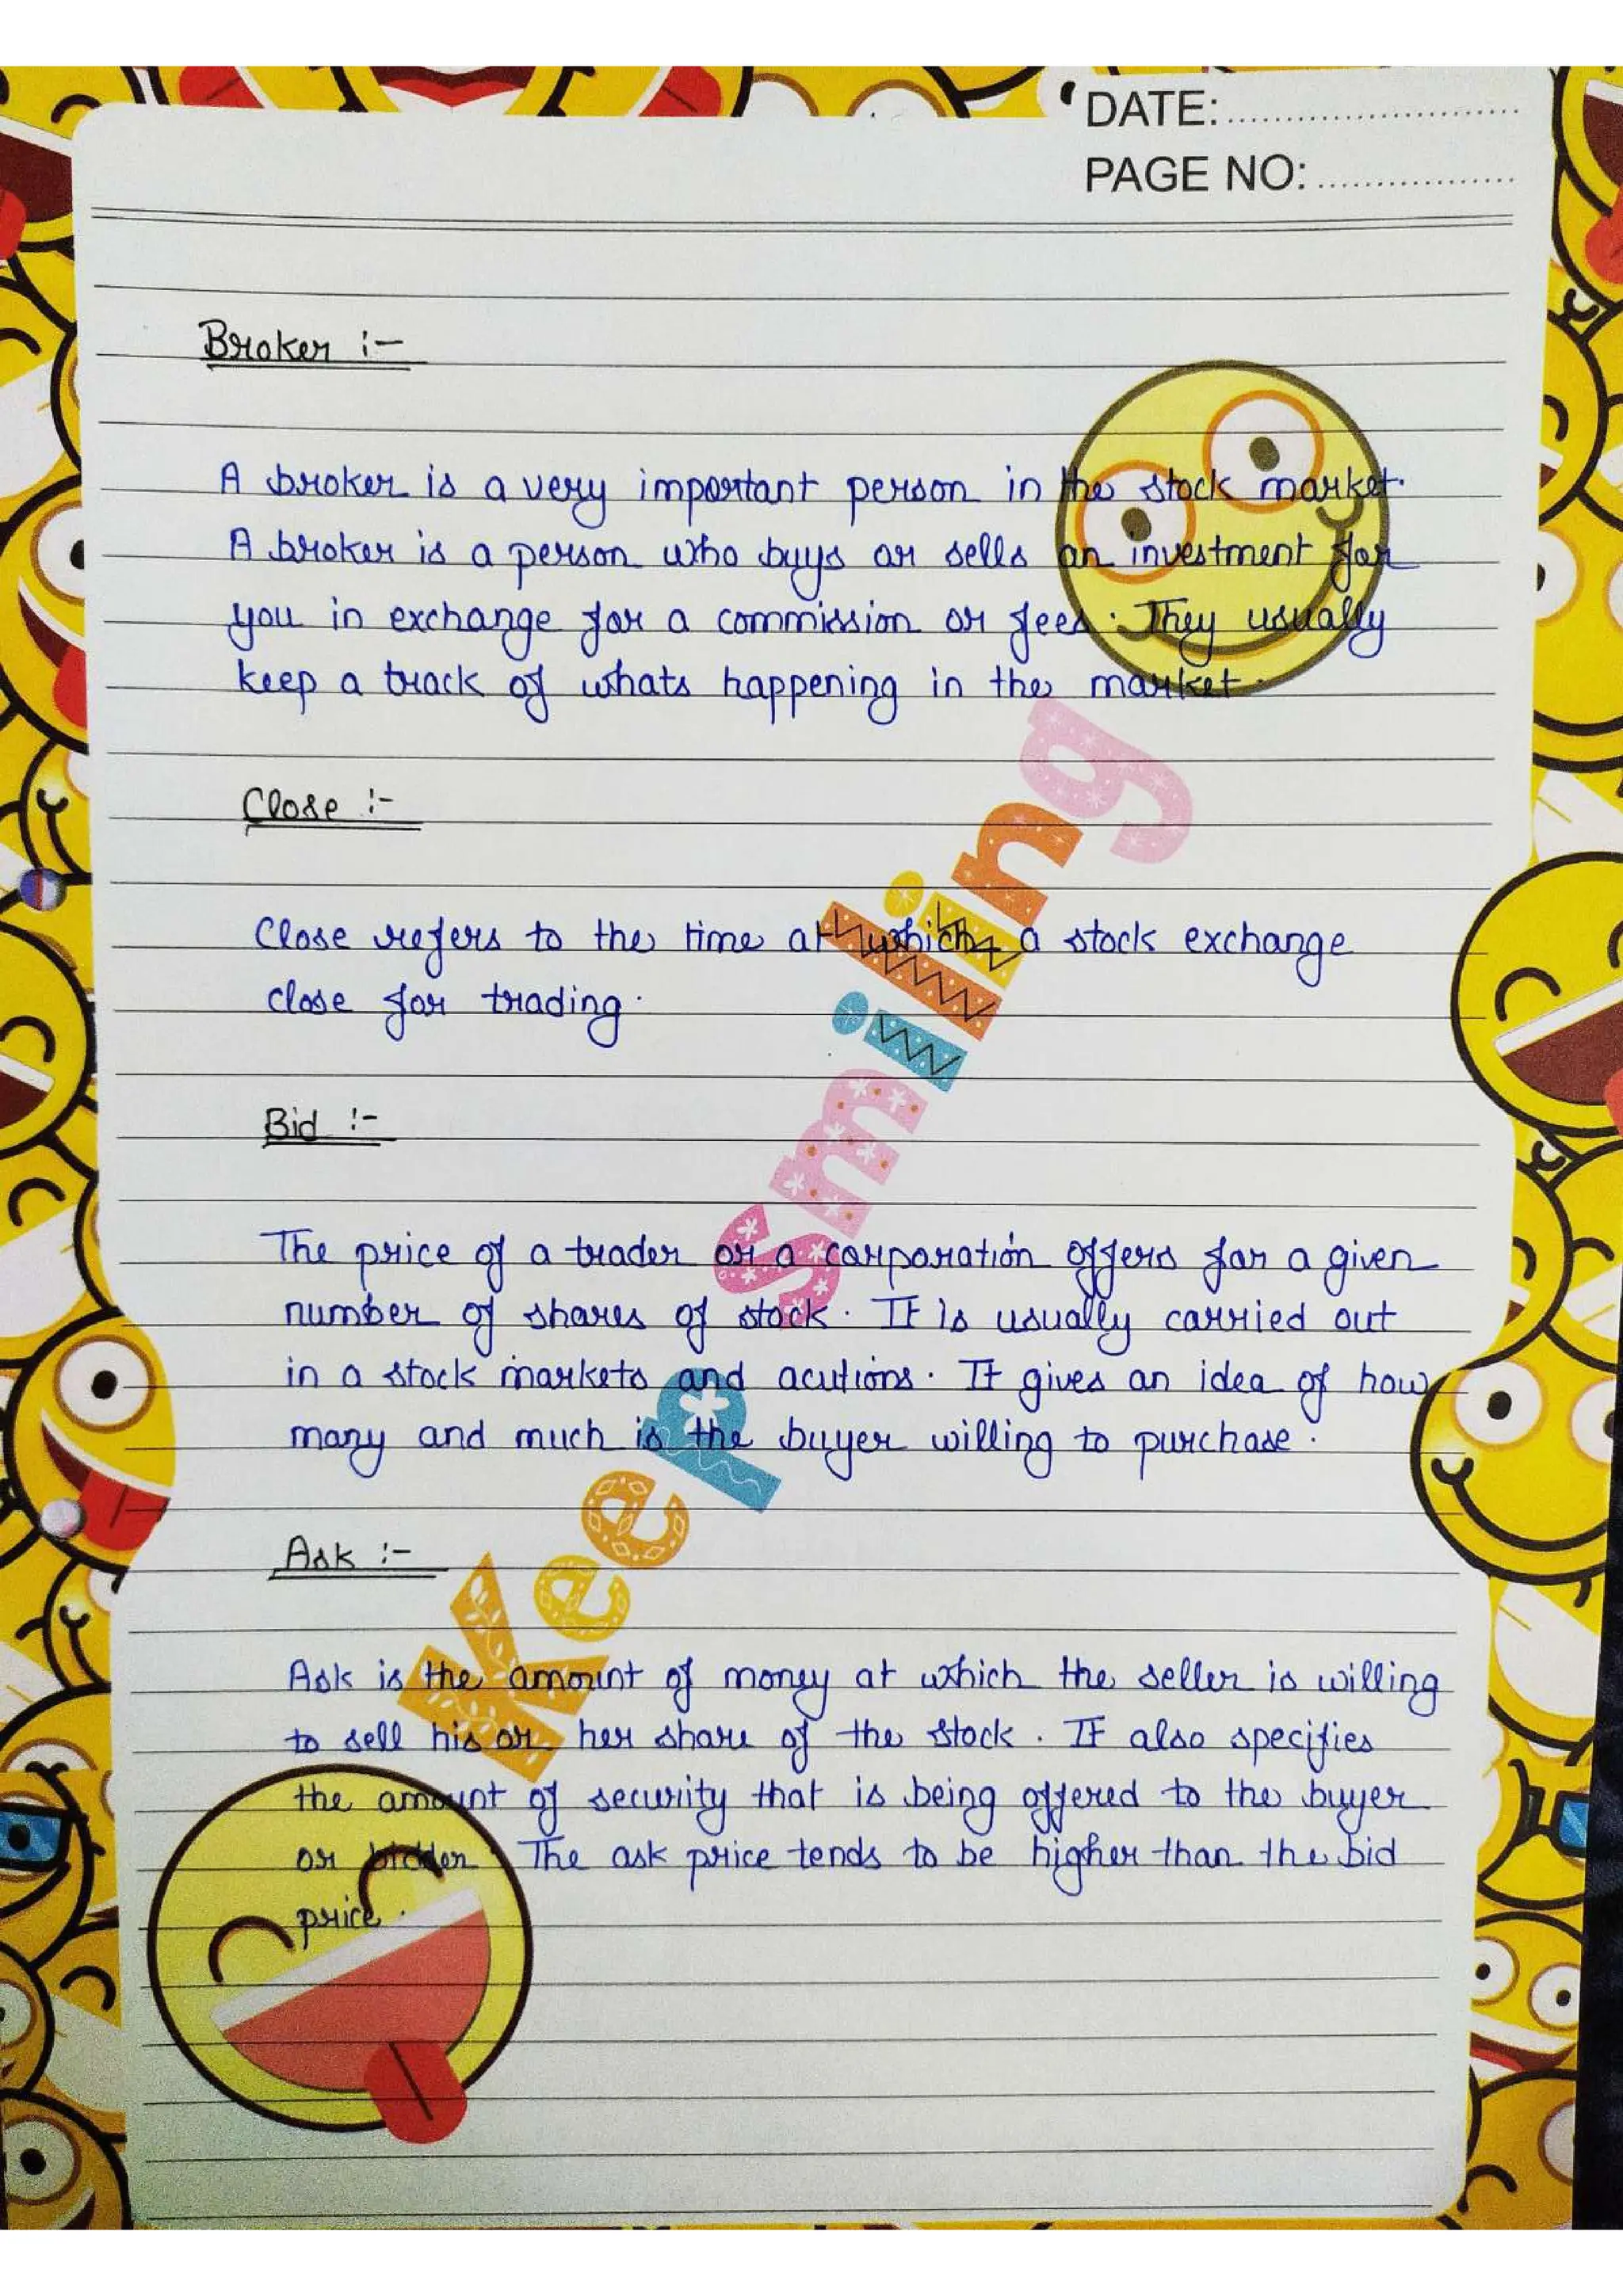 DATE:..........................
PAGE NO:..................
Broker :-
A broker is a very important person in the stock market.
A broker is a person who buys or sells an investment for
you in exchange for a commission or fees. They usually
keep a track of whats happening in the market.
Close :-
Close refers to the time at which a stock exchange
close for trading.
Bid :-
The price of a trader or a corporation offers for a given
number of shares of stock. It is usually carried out
in a stock markets and acutions. It gives an idea of how
many and much is the buyer willing to purchase.
Ask :-
Ask is the amount of money at which the seller is willing
to sell his or her share of the stock. It also specifies
the amount of security that is being offered to the buyer
or bidder. The ask price tends to be higher than the bid
price.
Keep Smiling